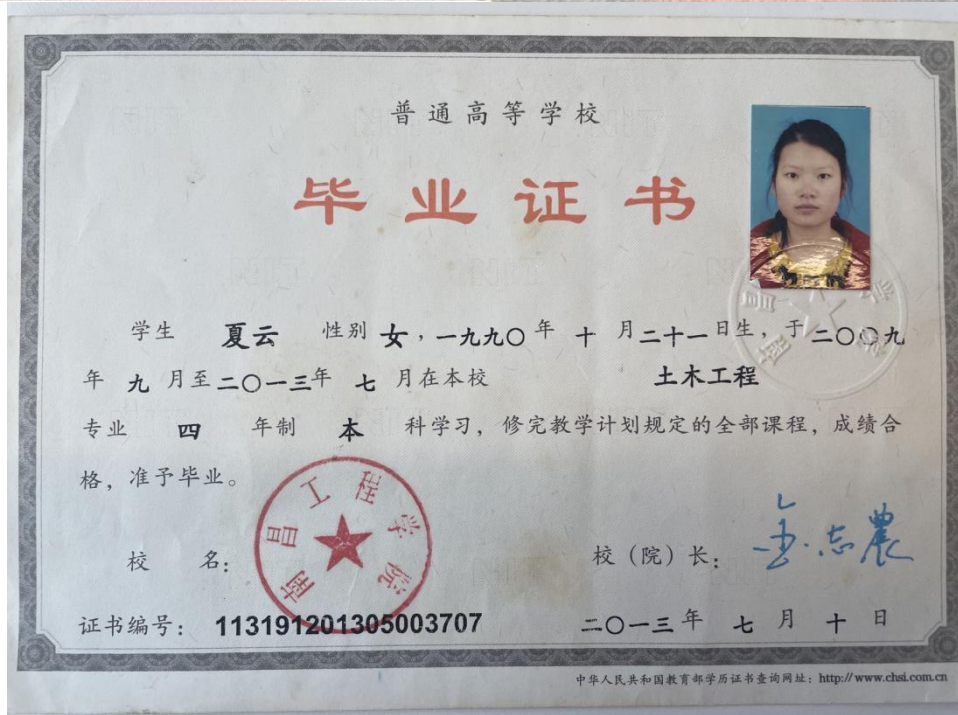 普通高等学校
毕业证书
学生 夏云 性别 女，一九九〇年 十 月二十一日生，于二〇〇九
年 九 月至二〇一三年 七 月在本校 土木工程
专业 四 年制 本 科学习，修完教学计划规定的全部课程，成绩合
格，准予毕业。
南昌工程学院
校 名：
校（院）长：金志農
证书编号：113191201305003707
二〇一三年 七 月 十 日
中华人民共和国教育部学历证书查询网址：http://www.chsi.com.cn